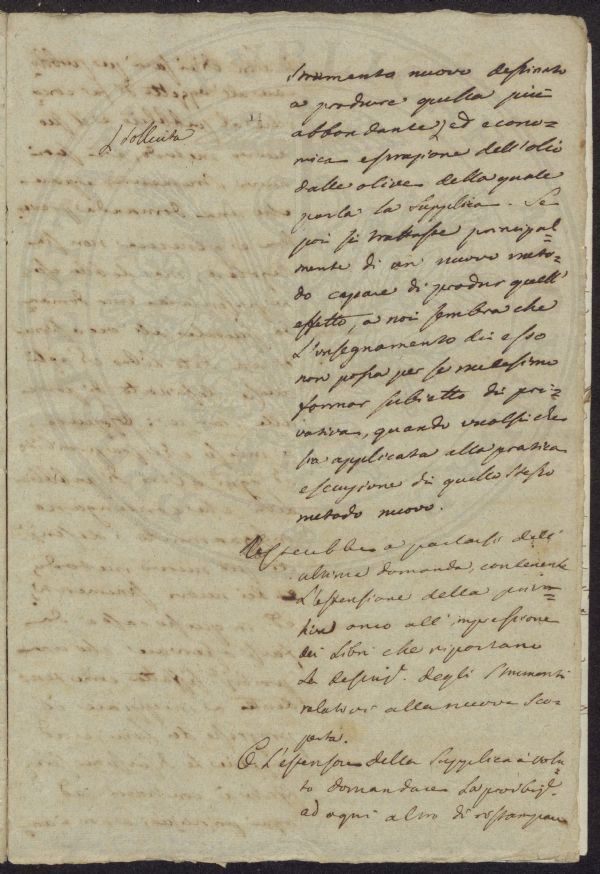 strumento nuovo destinato
a produrre questa più
abbondante, ed econo=
mica espressione dell'olio
dalle olive della quale
parla la supplica. Se
poi si trattasse principal=
mente di un nuovo meto=
do capace di produr quell'
effetto, a noi sembra che
L'insegnamento di esso
non possa per se medesimo
formar subietto di pri=
vativa, quando vuolsi che
sia applicata alla pratica
esecuzione di quello stesso
metodo nuovo.
Resterebbe a parlarsi dell'
ultima domanda, contenente
L'estensione della priva=
tiva anco all'impressione
dei Libri che riportano
le descriz. degli strumenti
relativi alla nuova sco=
perta.
L'estensore della supplica à volu=
to domandare la proibiz.
ad ogni altro di ristampare